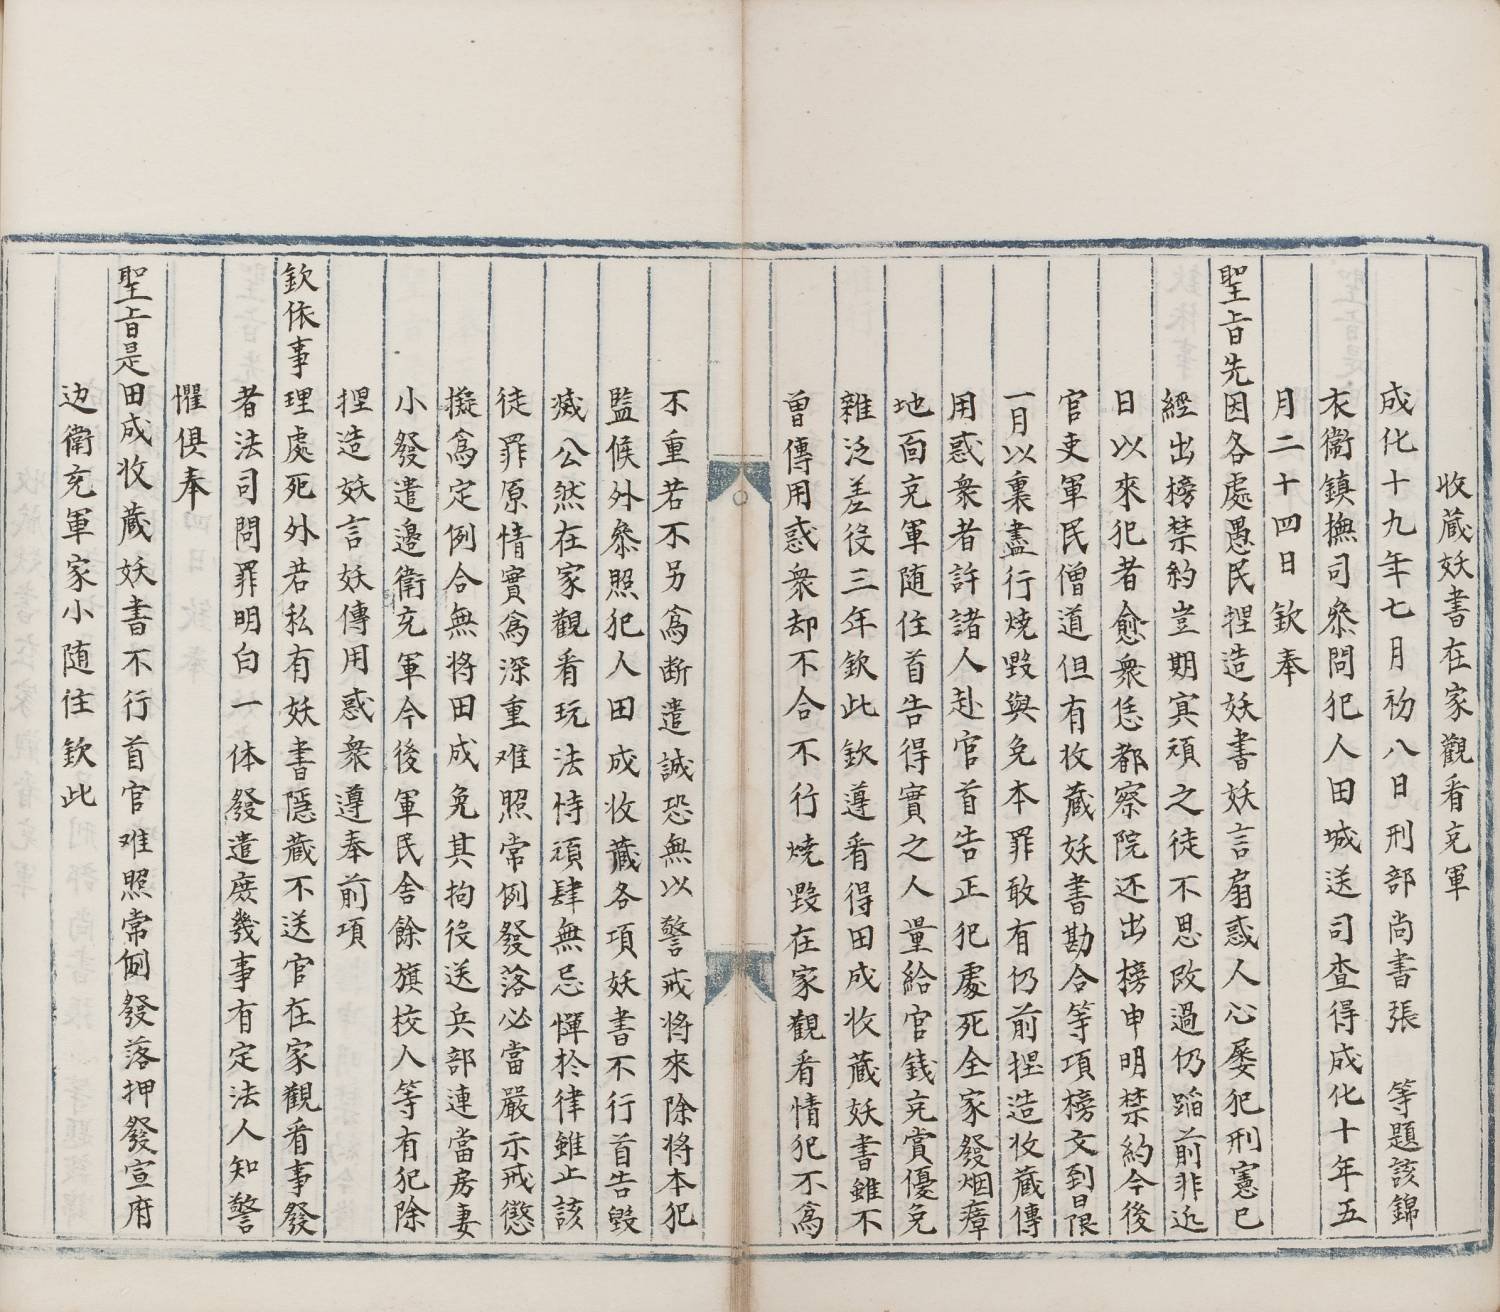 收蔵妖書在家觀看充軍
成化十九年七月初八日刑部尚書張 等題該錦
衣衛鎮撫司叅問犯人田城送司查得成化十年五
月二十四日欽奉
聖旨先因各處愚民捏造妖書妖言扇惑人心屡犯刑憲已
經出榜禁約豈期寘頑之徒不思改過仍蹈前非近
日以來犯者愈衆恁都察院还出榜申明禁約今後
官吏軍民僧道但有收蔵妖書勘合等項榜文到日限
一月以裏盡行燒毀與免本罪敢有仍前捏造收蔵傳
用惑衆者許諸人赴官首告正犯處死全家發烟瘴
地面充軍随住首告得實之人量給官錢充賞優免
雜泛差役三年欽此欽遵看得田成收蔵妖書雖不
曽傳用惑衆却不合不行燒毀在家觀看情犯不爲
不重若不另爲断遣誠恐無以警戒將來除將本犯
監候外叅照犯人田成收蔵各項妖書不行首告毀
滅公然在家觀看玩法恃頑肆無忌憚於律雖止該
徒罪原情實爲深重难照常例發落必當嚴示戒懲
擬爲定例合無將田成免其拘役送兵部連當房妻
小發遣邊衛充軍今後軍民舍餘旗校人等有犯除
捏造妖言妖傳用惑衆遵奉前項
欽依事理處死外若私有妖書隱蔵不送官在家觀看事發
者法司問罪明白一体發遣庻幾事有定法人知警
懼俱奉
聖旨是田成收蔵妖書不行首官难照常例發落押發宣府
边衛充軍家小随住欽此